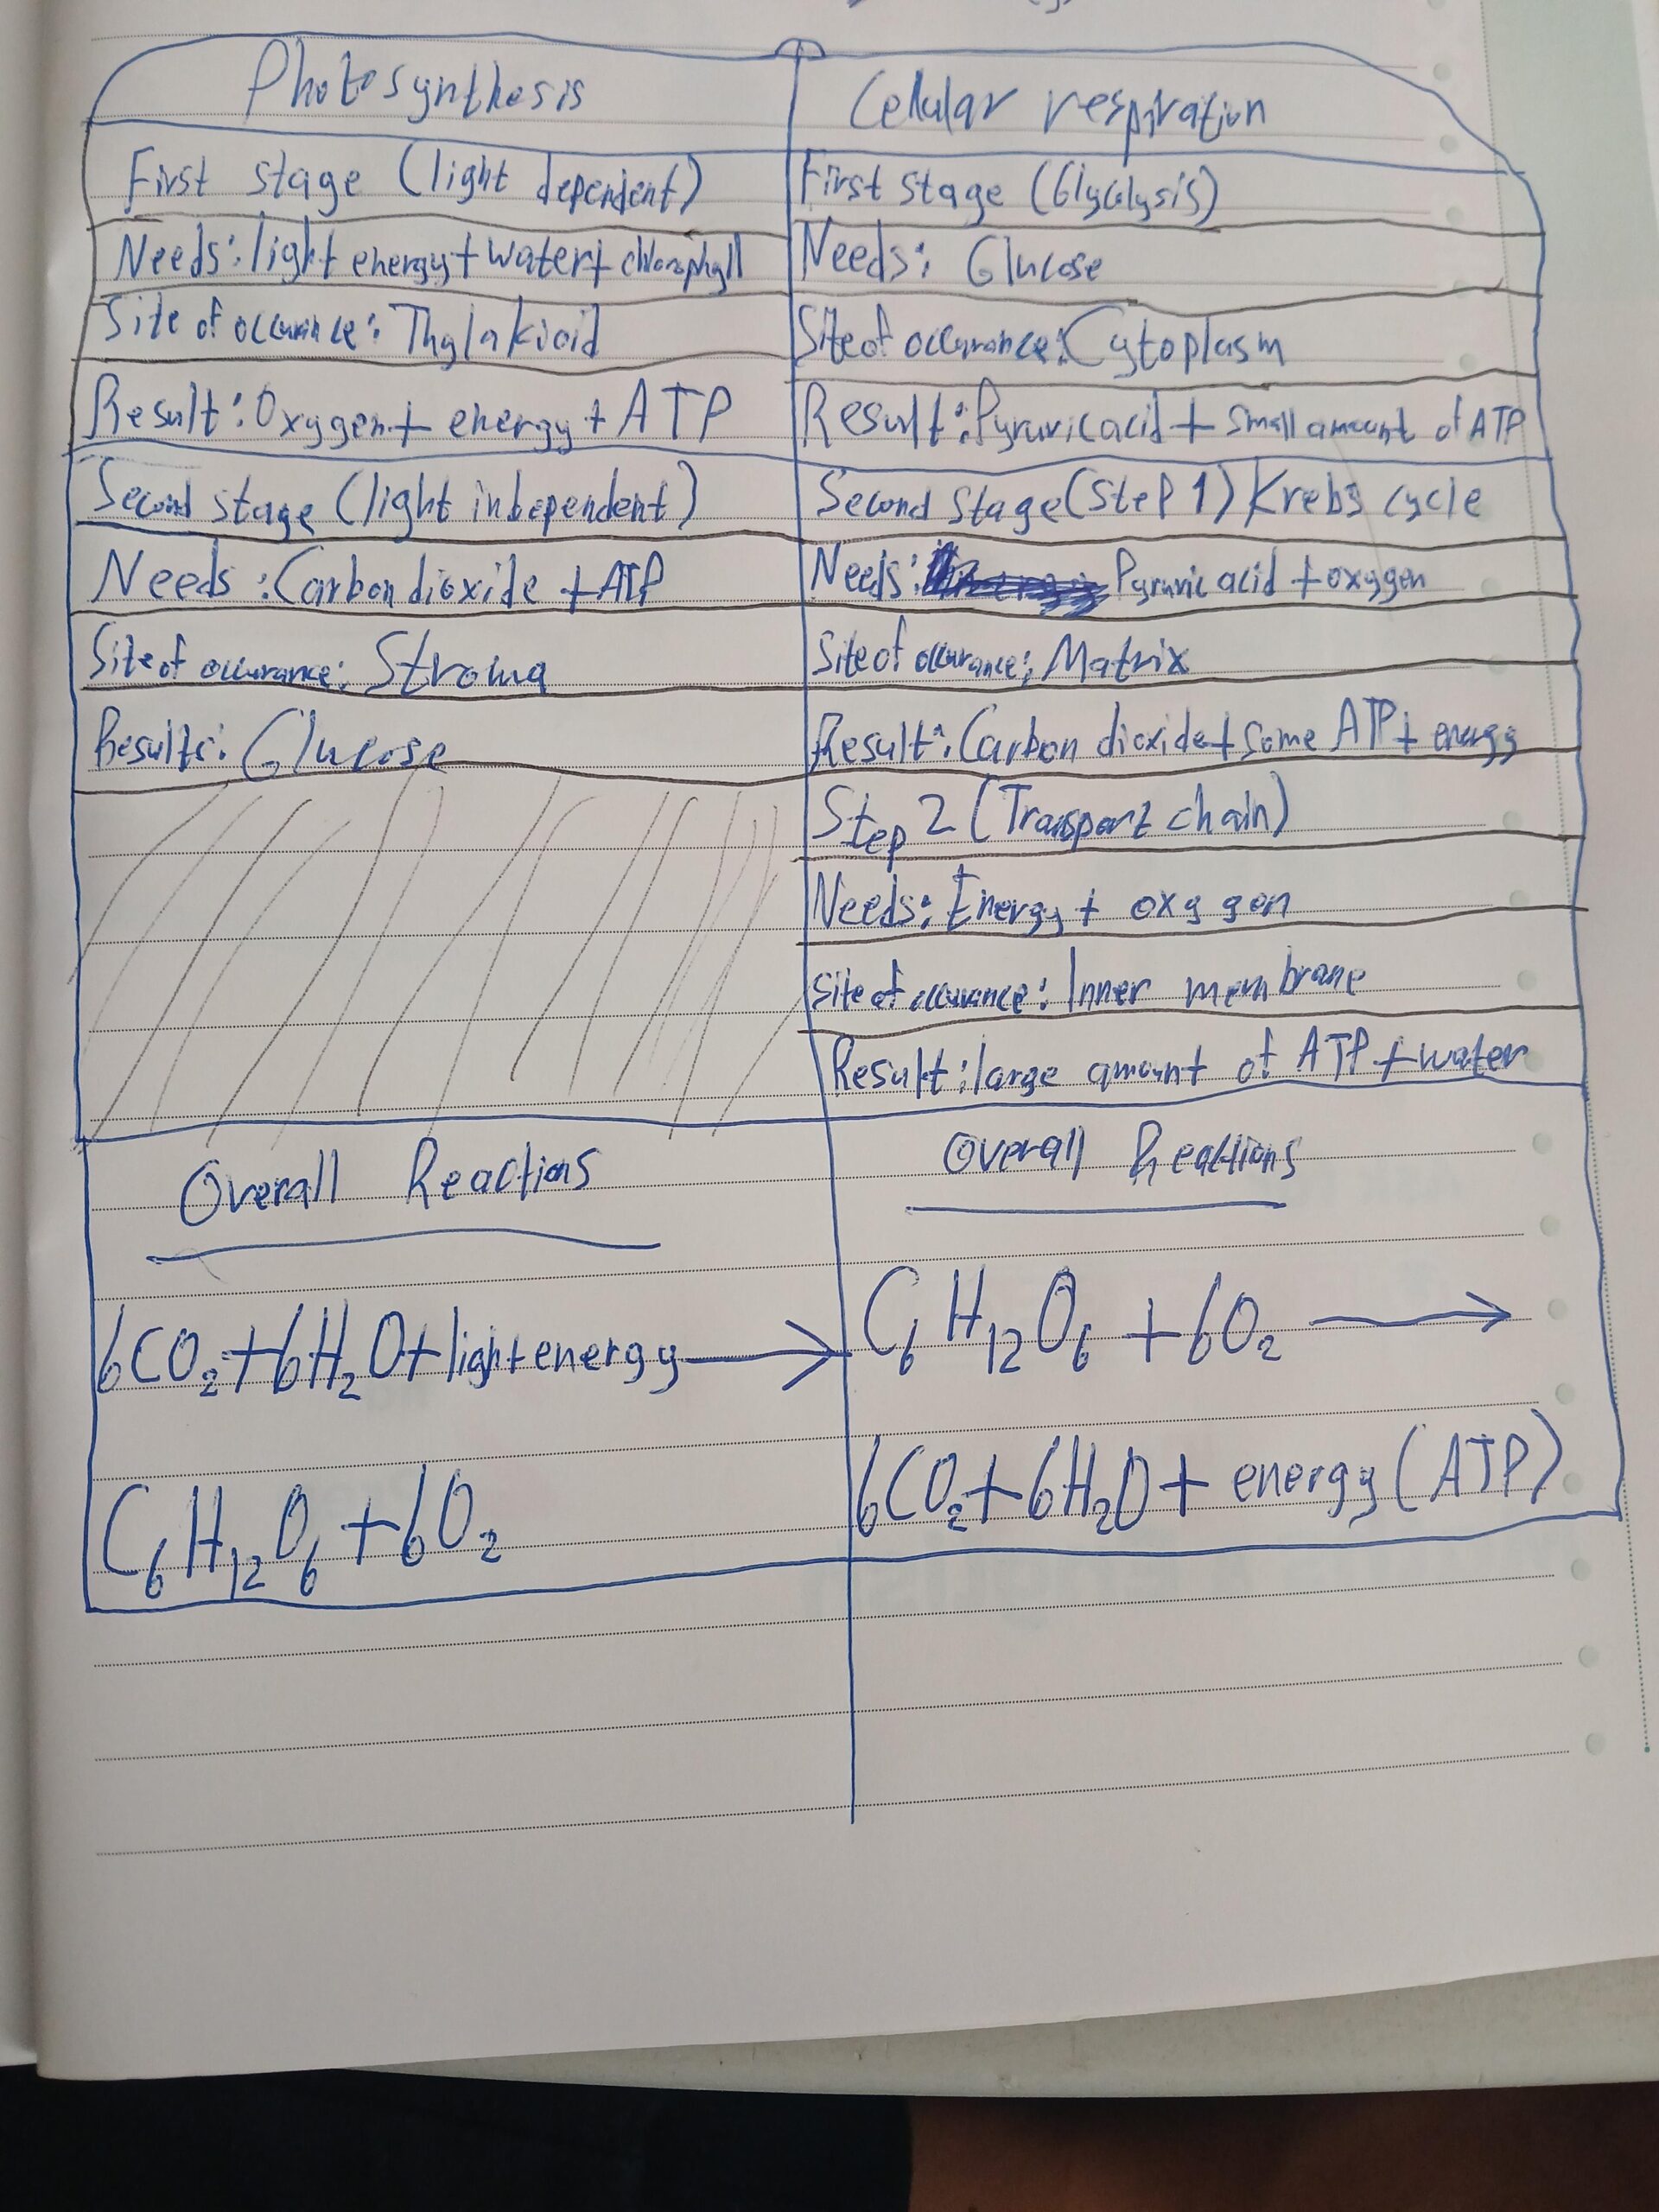 Photosynthesis
First stage (light dependent)
Needs: light energy + water + chlorophyll
Site of occurance: Thylakioid
Result: Oxygen + energy + ATP
Second stage (light independent)
Needs: Carbon dioxide + ATP
Site of occurance: Stroma
Results: Glucose
Overall Reactions
6CO₂ + 6H₂O + light energy →
C₆H₁₂O₆ + 6O₂
Cellular respiration
First stage (Glycolysis)
Needs: Glucose
Site of occurance: Cytoplasm
Result: Pyruvic acid + small amount of ATP
Second stage (Step 1) Krebs cycle
Needs: Pyruvic acid + oxygen
Site of occurance: Matrix
Result: Carbon dioxide + some ATP + energy
Step 2 (Transport chain)
Needs: Energy + oxygen
Site of occurance: Inner membrane
Result: large amount of ATP + water
Overall Reactions
C₆H₁₂O₆ + 6O₂ →
6CO₂ + 6H₂O + energy (ATP)